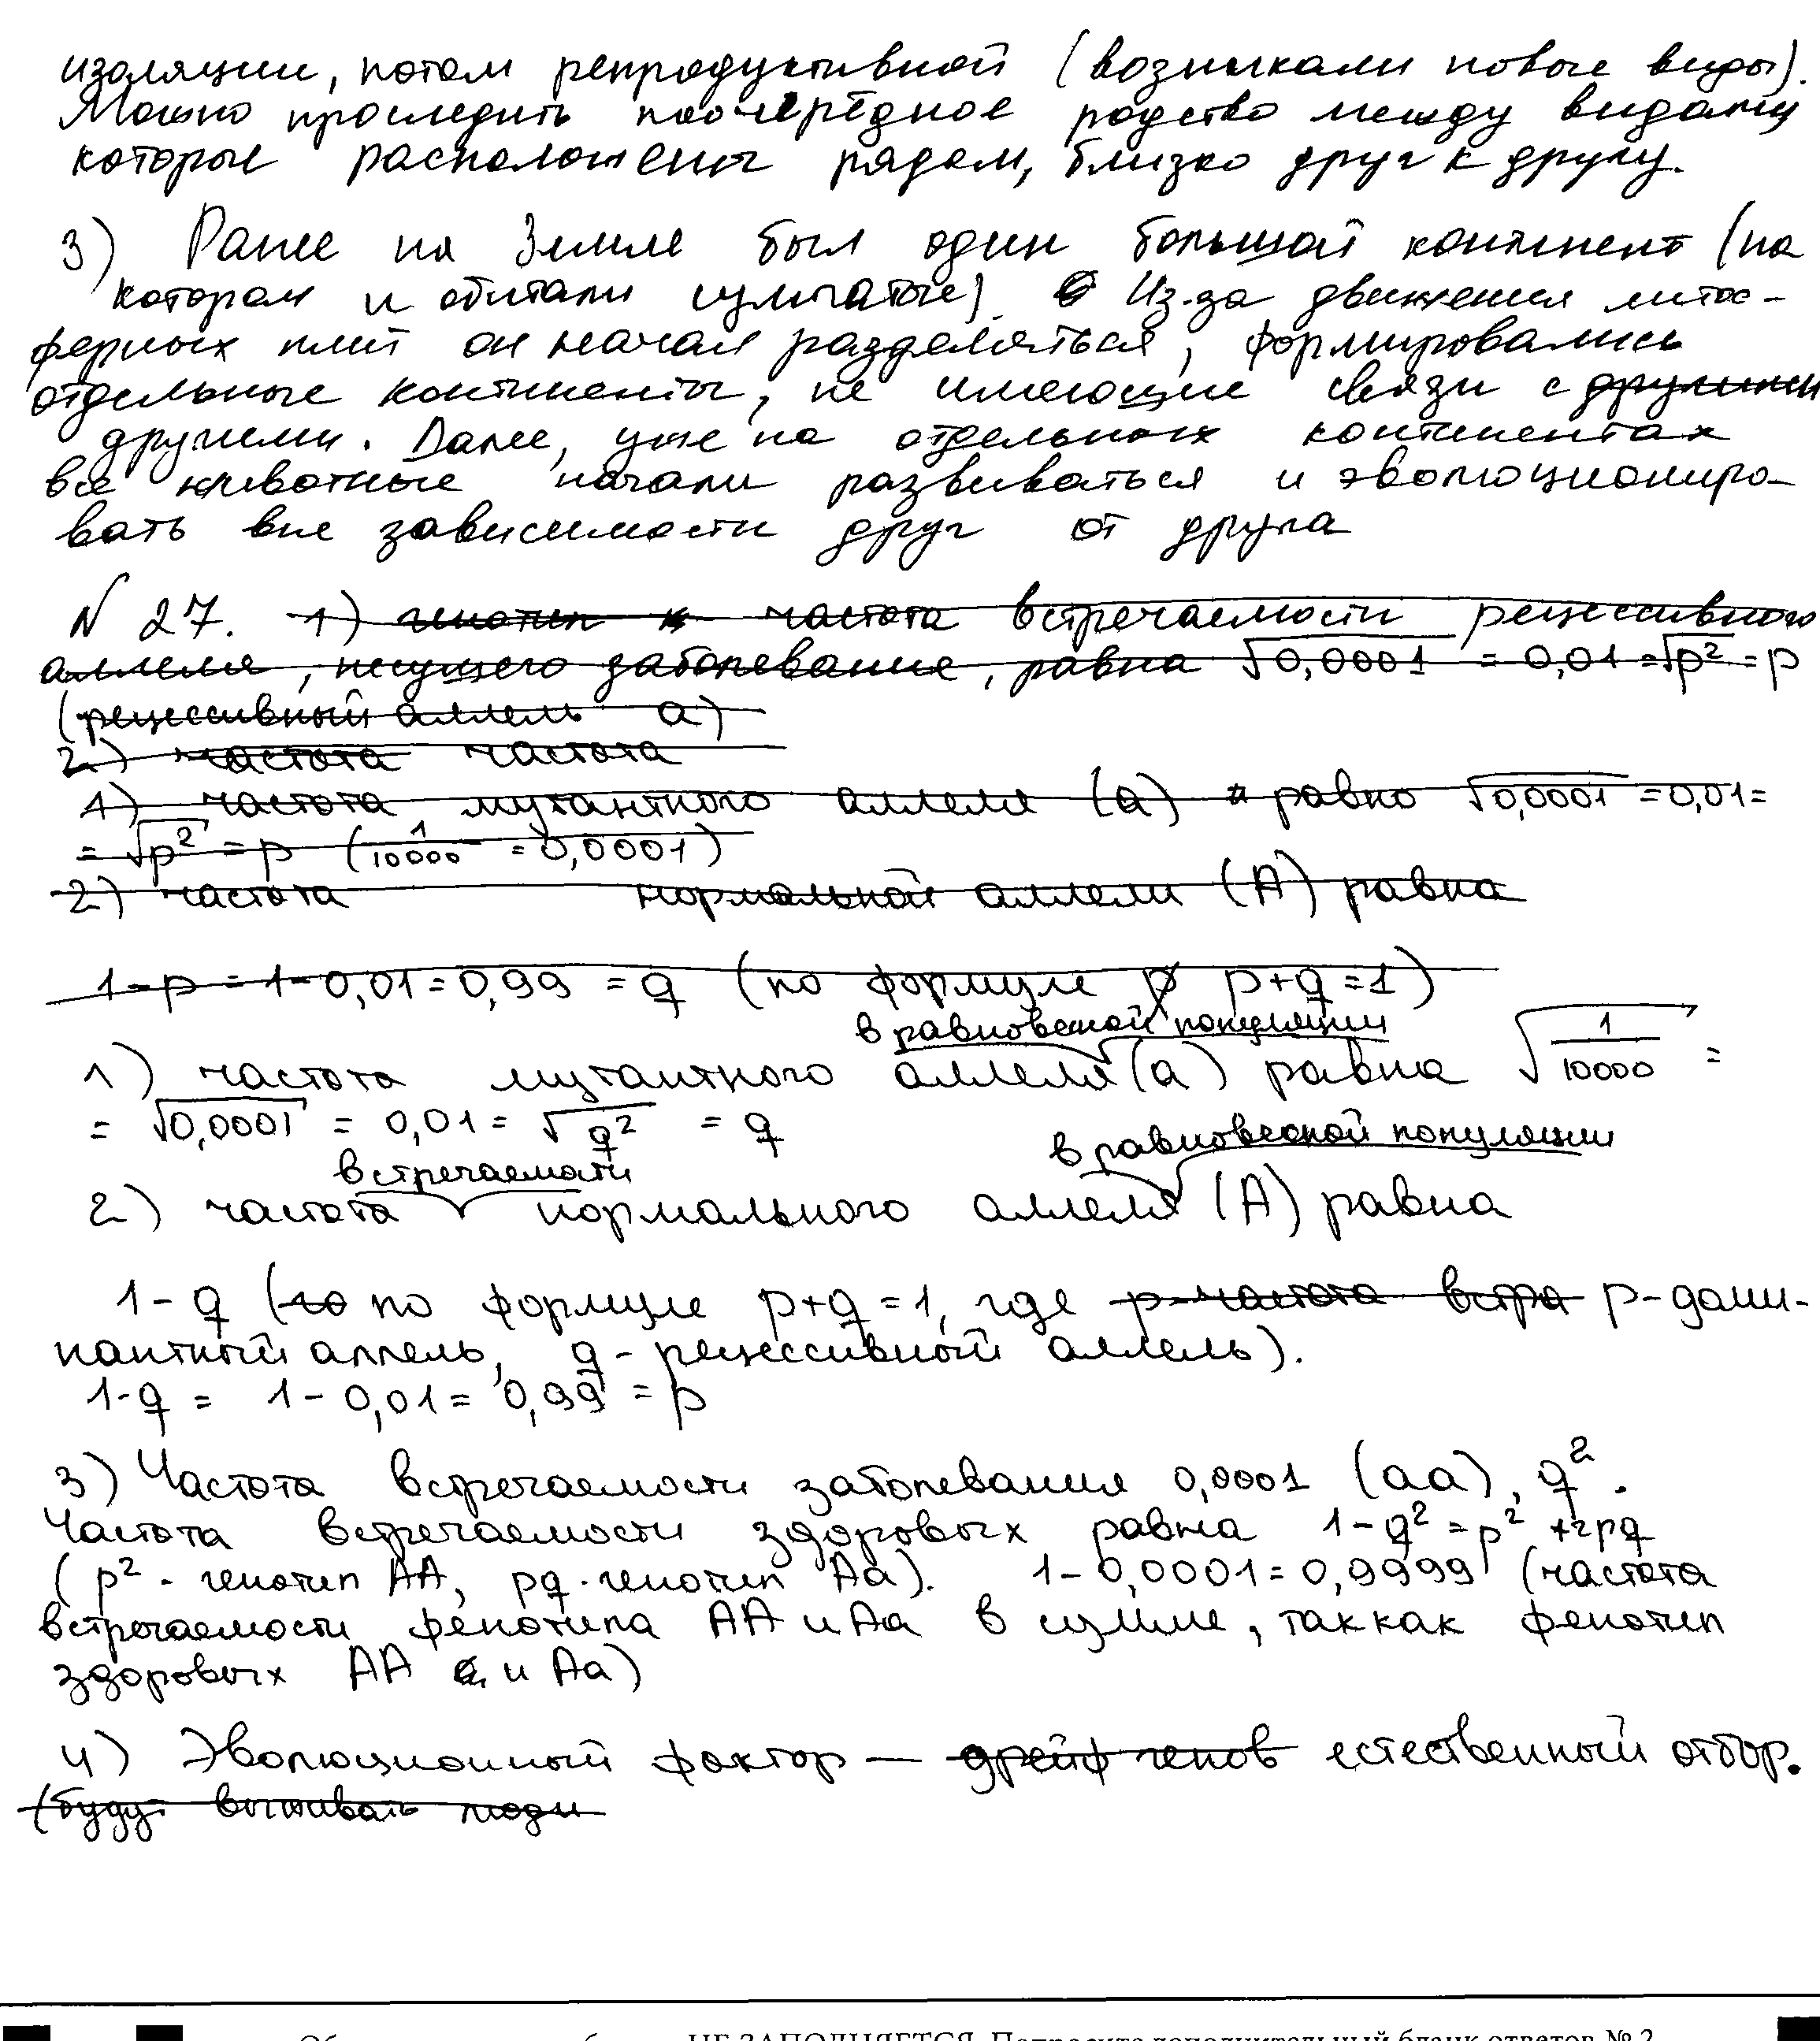 изоляции, потом репродуктивной (возникали новые виды).
Можно проследить поочерёдное родство между видами
которые расположены рядом, близко друг к другу.
3) Ранее на Земле был один большой континент (на
котором и обитали сумчатые). Из-за движения литос-
ферных плит он начал разделяться, формировались
отдельные континенты, не имеющие связи с другими
другими. Далее, уже на отдельных континентах
все животные начали развиваться и эволюциониро-
вать вне зависимости друг от друга
N 27. 1) генотип к частота встречаемости рецессивного
аллеля, несущего заболевание, равна √0,0001 = 0,01 = √p² = p
(рецессивный аллель а)
2) частота частота
1) частота мутантного аллеля (а) равно √0,0001 = 0,01 =
= √p² = p (1/10000 = 0,0001)
2) частота нормальной аллели (А) равна
1-p = 1-0,01 = 0,99 = q (по формуле p p+q=1)
в равновесной популяции
1) частота мутантного аллеля (а) равна √1/10000 =
= √0,0001 = 0,01 = √q² = q
встречаемости в равновесной популяции
2) частота нормального аллеля (А) равна
1-q (по по формуле p+q=1, где p-частота встре p-доми-
нантный аллель, q-рецессивный аллель).
1-q = 1-0,01 = 0,99 = p
3) Частота встречаемости заболевания 0,0001 (аа), q².
Частота встречаемости здоровых равна 1-q² = p² +2pq
(p² - генотип АА, pq - генотип Аа). 1-0,0001=0,9999 (частота
встречаемости фенотипа АА и Аа в сумме, так как фенотип
здоровых АА и Аа)
4) Эволюционный фактор — дрейф генов естественный отбор.
(будут выживать люди
НЕ ЗАПОЛНЯЕТСЯ. Попросите дополнительный бланк ответов № 2